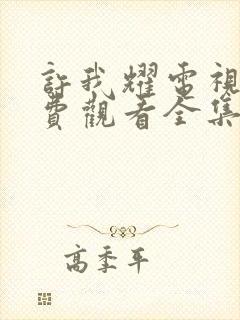 許我耀電視
費觀看全集
高季平